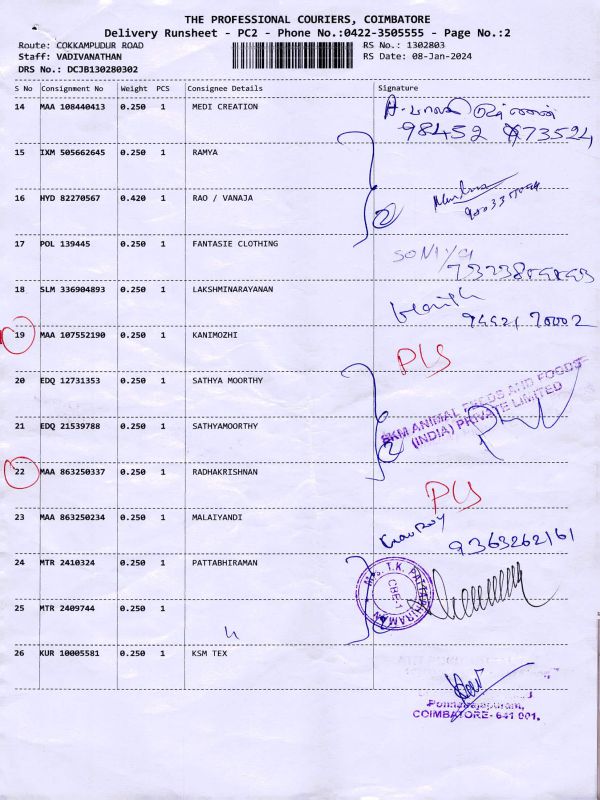 THE PROFESSIONAL COURIERS, COIMBATORE
Delivery Runsheet - PC2 - Phone No.:0422-3505555 - Page No.:2
Route: COKKAMPUDUR ROAD RS No.: 1302803
Staff: VADIVANATHAN RS Date: 08-Jan-2024
DRS No.: DCJB130280302
S No Consignment No Weight PCS Consignee Details Signature
14 MAA 108440413 0.250 1 MEDI CREATION
98452 73524
15 IXM 505662645 0.250 1 RAMYA
16 HYD 82270567 0.420 1 RAO / VANAJA
2
17 POL 139445 0.250 1 FANTASIE CLOTHING
SONIYA
18 SLM 336904893 0.250 1 LAKSHMINARAYANAN
94421 70002
19 MAA 107552190 0.250 1 KANIMOZHI
PLS
20 EDQ 12731353 0.250 1 SATHYA MOORTHY
SKM ANIMAL FEEDS AND FOODS
(INDIA) PRIVATE LIMITED
21 EDQ 21539788 0.250 1 SATHYAMOORTHY
2
22 MAA 863250337 0.250 1 RADHAKRISHNAN
PLS
23 MAA 863250234 0.250 1 MALAIYANDI
9363262161
24 MTR 2410324 0.250 1 PATTABHIRAMAN
M/s. T.K. PATTABHIRAMAN
CBE-1
25 MTR 2409744 0.250 1
26 KUR 10005581 0.250 1 KSM TEX
COIMBATORE- 641 001.